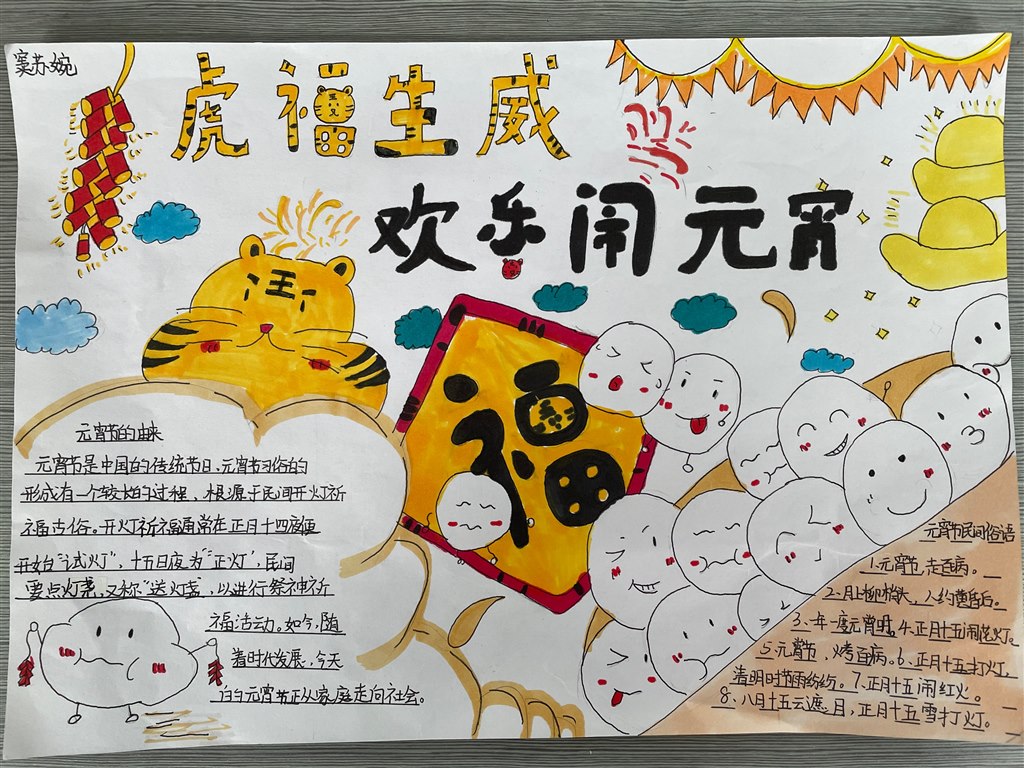 窦苏婉
虎福生威
欢乐闹元宵
王
福
元宵节的由来
元宵节是中国的传统节日、元宵节习俗的
形成有一个较长的过程，根源于民间开灯祈
福古俗。开灯祈福通常在正月十四夜便
开始“试灯”，十五日夜为“正灯”，民间
要点灯盏，又称“送灯盏，以进行祭神祈
福活动。如今，随
着时代发展，今天
的元宵节正从家庭走向社会。
元宵节民间俗语
1.元宵节，走百病。
2.月上柳梢头，人约黄昏后。
3、一年一度元宵明。4.正月十五闹花灯。
5.元宵节，烤百病。6、正月十五打灯，
清明时节雨纷纷。7.正月十五闹红火。
8、八月十五云遮月，正月十五雪打灯。